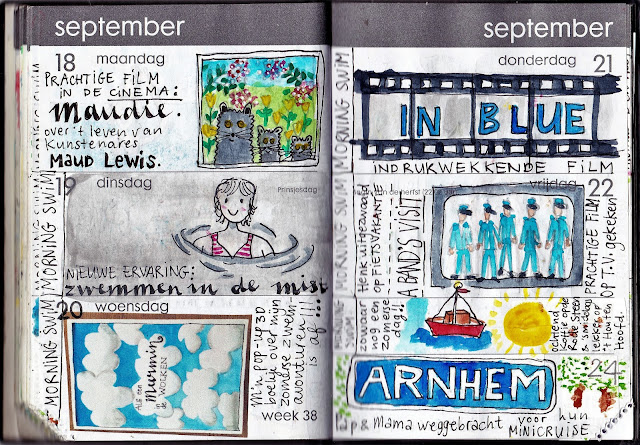 september
18 maandag
PRACHTIGE FILM
IN DE CINEMA:
Maudie.
over 't leven van
Kunstenares
MAUD LEWIS.
MORNING SWIM
19 dinsdag
Prinsjesdag
NIEUWE ERVARING:
zwemmen in de mist
MORNING SWIM
20 woensdag
Mummin
de
WOLKEN
M'n pop-up 3D
boekje over mijn
zomerse zwem-
avonturen
is af!!!
week 38
MORNING SWIM
september
donderdag 21
MORNING SWIM
IN BLUE
INDRUKWEKKENDE FILM
vrijdag 22
MORNING SWIM
Henk uitgezwaaid
op FIETSVAKANTIE
A BAND'S VISIT
PRACHTIGE FILM
OP T.V. gekeken
zowaar
nog een
zomerse
dag!!
ochtend
Rode Steen
& smiddags
't Houten
Hoofd.
24
ARNHEM
& Mama weggebracht voor hun
MINICRUISE